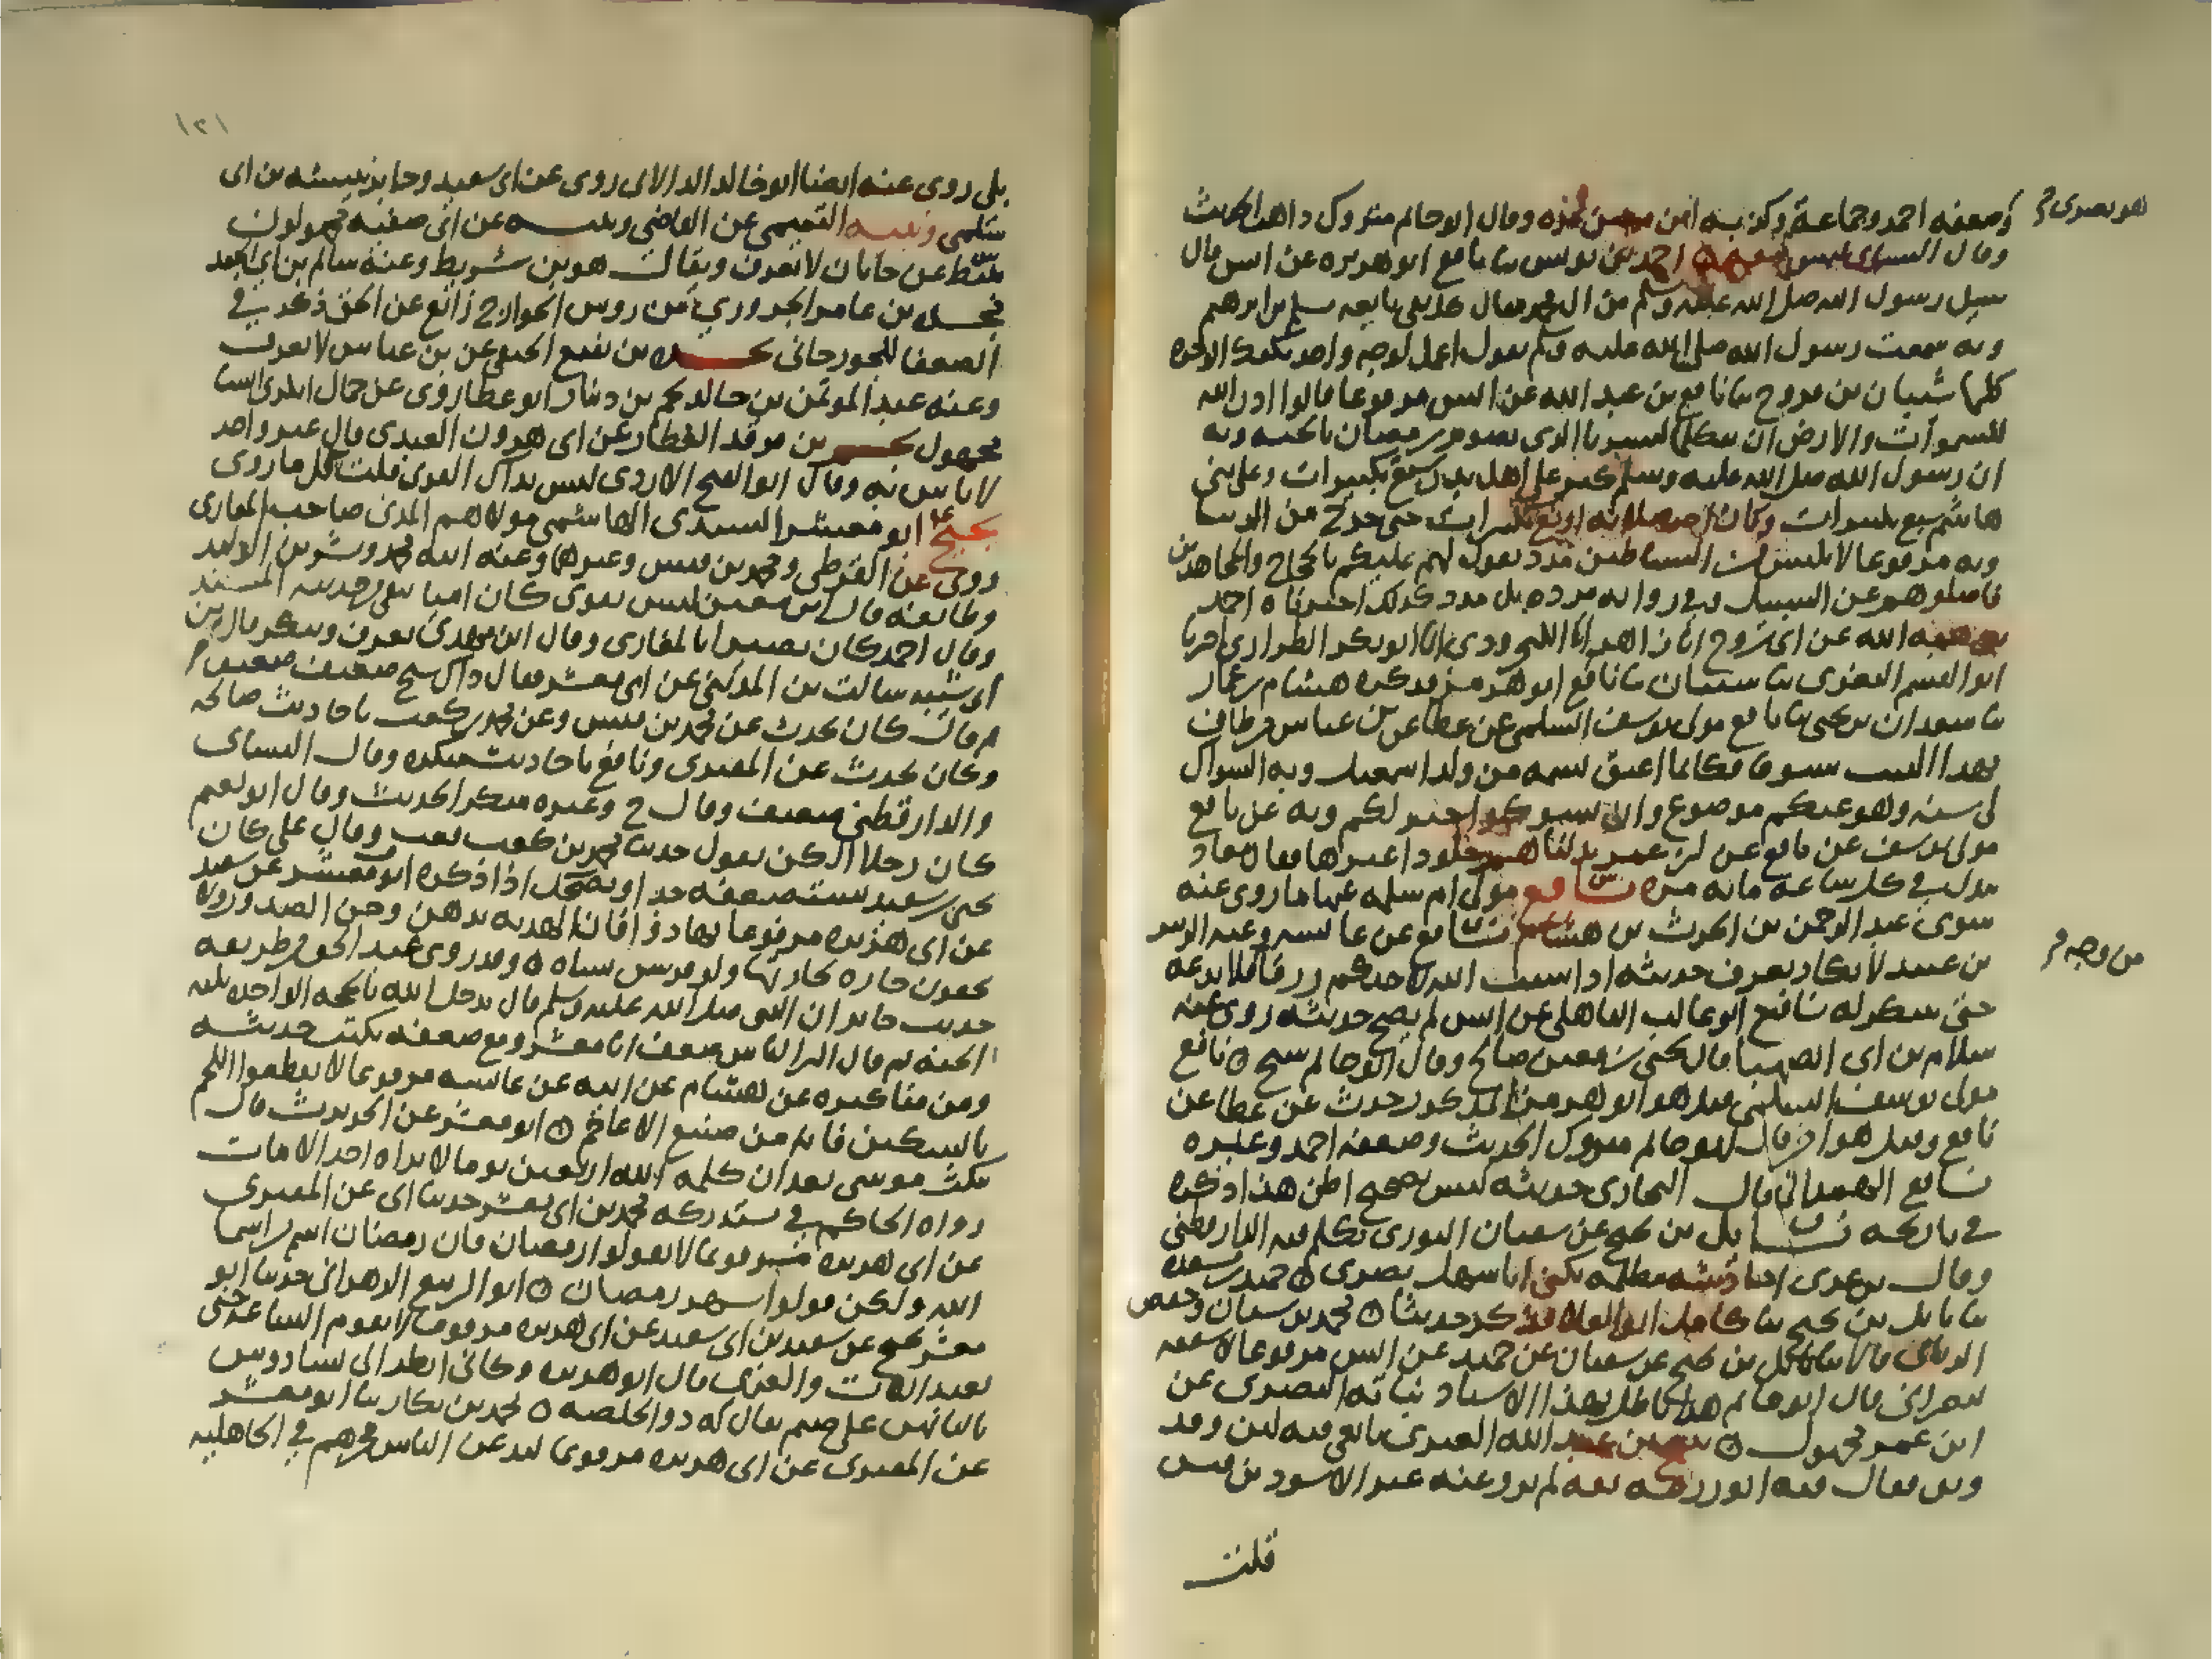 وضعفه احمد وجماعة وكذبه ابن معين مره وقال ابو حاتم متروك ذاهب الحديث
هو بصرى
وقال النساى ليس بثقة احمد بن يونس ثنا نافع ابو هرمزه عن انس قال
سيل رسول الله صلى الله عليه وسلم من ال محمد فقال كل تقى تابعه سلم بن ابرهيم
وبه سمعت رسول الله صلى الله عليه وسلم يقول اعمل لوجه واحد يكفيك الاوجه
كلها شيبان بن فروخ ثنا نافع بن عبد الله عن انس مرفوعا قالوا اذن الله
للسموات والارض ان تتكلما لبشرنا الذى يصوم رمضان بالجنه وبه
ان رسول الله صلى الله عليه وسلم كبر على اهل بدر سبع تكبيرات وعلى بنى
هاشم سبع تكبيرات وكان اخر صلاته اربع تكبيرات حتى خرج من الدنيا
وبه مرفوعا لابليس من الشياطين مردة يقول لهم عليكم بالحجاج والمجاهدين
فاضلوهم عن السبيل وفى روايه مرده بدل مدد كذلك اخبرناه احمد
بن هبه الله عن ابى روح انا زاهر انا انا ابو بكر الطرازى اخرنا
ابو القسم البغوى ثنا شيبان ثنا نافع ابو هرمز فذكره هشام بن عمار
ثنا سعدان بن يحيى ثنا نافع مولى يوسف السلمى عن عطا عن بن عباس من طاف
بهذا البيت سبوعا فكانما اعتق نسمه من ولد اسمعيل وبه السوال
لى سنه وهو عنكم موضوع وان تستوكوا خير لكم وبه عن نافع
مولى يوسف عن نافع عن بن عمر بدلناهم جلودا غيرها فقال معاذ
تبدل فى كل ساعة مائة مره ناعم مولى ام سلمه عنها ما روى عنه
سوى عبد الرحمن بن الحرث بن هشام نافع عن عايشه وعنه الزبير
بن عبيد لا يكاد يعرف حديثه اذا سبب الله لاحدكم رزقا فلا يدعه
من وجه
حتى يتنكر له نافع ابو غالب الباهلى عن انس لم يصح حديثه روى عنه
سلام بن ابى الصهبا قال يحيى بن معين صالح وقال ابو حاتم شيخ نافع
مولى يوسف السلمى قيل هو ابو هرمز المذكور حدث عن عطا عن
نافع وقيل هو اخر قال ابو حاتم متروك الحديث وضعفه احمد وغيره
نافع الهمدانى قال البخارى حديثه ليس بصحيح اظن هذا ذكره
فى تاريخه نايل بن نجيح عن سفيان الثورى تكلم فيه الدارقطنى
وقال بن عدى احاديثه مظلمه يكنى ابا سهل بصرى حميد بن مسعده
ثنا نايل بن نجيح ثنا كامل ابو العلا فذكر حديثا محمد بن سنان وحفص
الربالى قالا ثنا نايل بن نجيح عن سفيان عن حميد عن انس مرفوعا لا شفعه
لنصرانى قال ابو حاتم هذا باطل بهذا الاسناد نباته البصرى عن
ابن عمر مجهول عبد الله العبدى تابعى فيه لين وقد
وثق فقال فيه ابو زرعه ثقه لم يرو عنه غير الاسود بن قيس
قلت
١٢١
بلى روى عنه ايضا ابو خالد الدالانى روى عن ابى سعيد وجابر نبيشه بن ابى
سلمى ونبيه التميمى عن القاضى ونبيه عن ابى صفيه مجهولون
نبيط عن جابان لا يعرف ويقال هو بن شريط وعنه سالم بن ابى الجعد
نجده بن عامر الحرورى من روس الخوارج زائغ عن الحق ذكر فى
الضعفا للجوزجانى نجده بن نفيع الحنفى عن بن عباس لا يعرف
وعنه عبد المومن بن خالد نجم بن دينار ابو عطا روى عن جمال
مجهول نجم بن فرقد العطار عن ابى هرون العبدى قال غير واحد
لا باس به وقال ابو الفتح الازدى ليس بذاك القوى قلت قل ما روى
نجيح ابو معشر السندى الهاشمى مولاهم المدنى صاحب المغازى
روى عن القرظى ومحمد بن قيس وغيرهما وعنه ابنه محمد وبشر بن الوليد
وطايفه قال بن معين ليس بقوى كان اميا يتقى حديثه المسند
وقال احمد كان بصيرا بالمغازى وقال ابن مهدى يعرف وينكر وقال بن
ابى شيبه سالت بن المدينى عن ابى معشر فقال ذاك شيخ ضعيف ضعيف
م وقال كان يحدث عن محمد بن قيس وعن محمد بن كعب باحاديث صالحه
وكان يحدث عن المقبرى ونافع باحاديث منكره وقال النساى
والدارقطنى ضعيف وقال خ وغيره منكر الحديث وقال ابو نعيم
كان رجلا الكن يقول حدثنا محمد بن قعب وقال على كان
يحيى بن سعيد يستضعفه جدا ويضحك اذا ذكره ابو معشر عن سعيد
عن ابى هريره مرفوعا تهادوا فان الهديه تذهب وحر الصدر ولا
تحقرن جاره لجارتها ولو فرسن شاه وقد روى عبد الحق من طريقه
حديث جابر ان النبى صلى الله عليه وسلم قال يدخل الله بالحجه الواحده ثلثه
الجنه ثم قال اكثر الناس ضعف ابا معشر ومع ضعفه يكتب حديثه
ومن مناكيره عن هشام عن ابيه عن عايشه مرفوعا لا تقطعوا اللحم
بالسكين فانه من صنيع الاعاجم ابو معشر عن الحويرث قال
مكث موسى بعد ان كلمه الله اربعين يوما لا يراه احد الا مات
رواه الحاكم فى مستدركه محمد بن ابى معشر حدثنا ابى عن المقبرى
عن ابى هريره مرفوعا لا تقولوا رمضان فان رمضان اسم من اسما
الله ولكن قولوا شهر رمضان ابو الربيع الزهرانى حدثنا ابو
معشر نجيح عن سعيد بن ابى سعيد عن ابى هريره مرفوعا لا تقوم الساعه حتى
تعبد اللات والعزى قال ابو هريره وكانى انظر الى نسا دوس
بالياتهن على صنم يقال له ذو الخلصه محمد بن بكار ثنا ابو معشر
عن المقبرى عن ابى هريره مرفوعا ليدعن الناس فخرهم فى الجاهليه